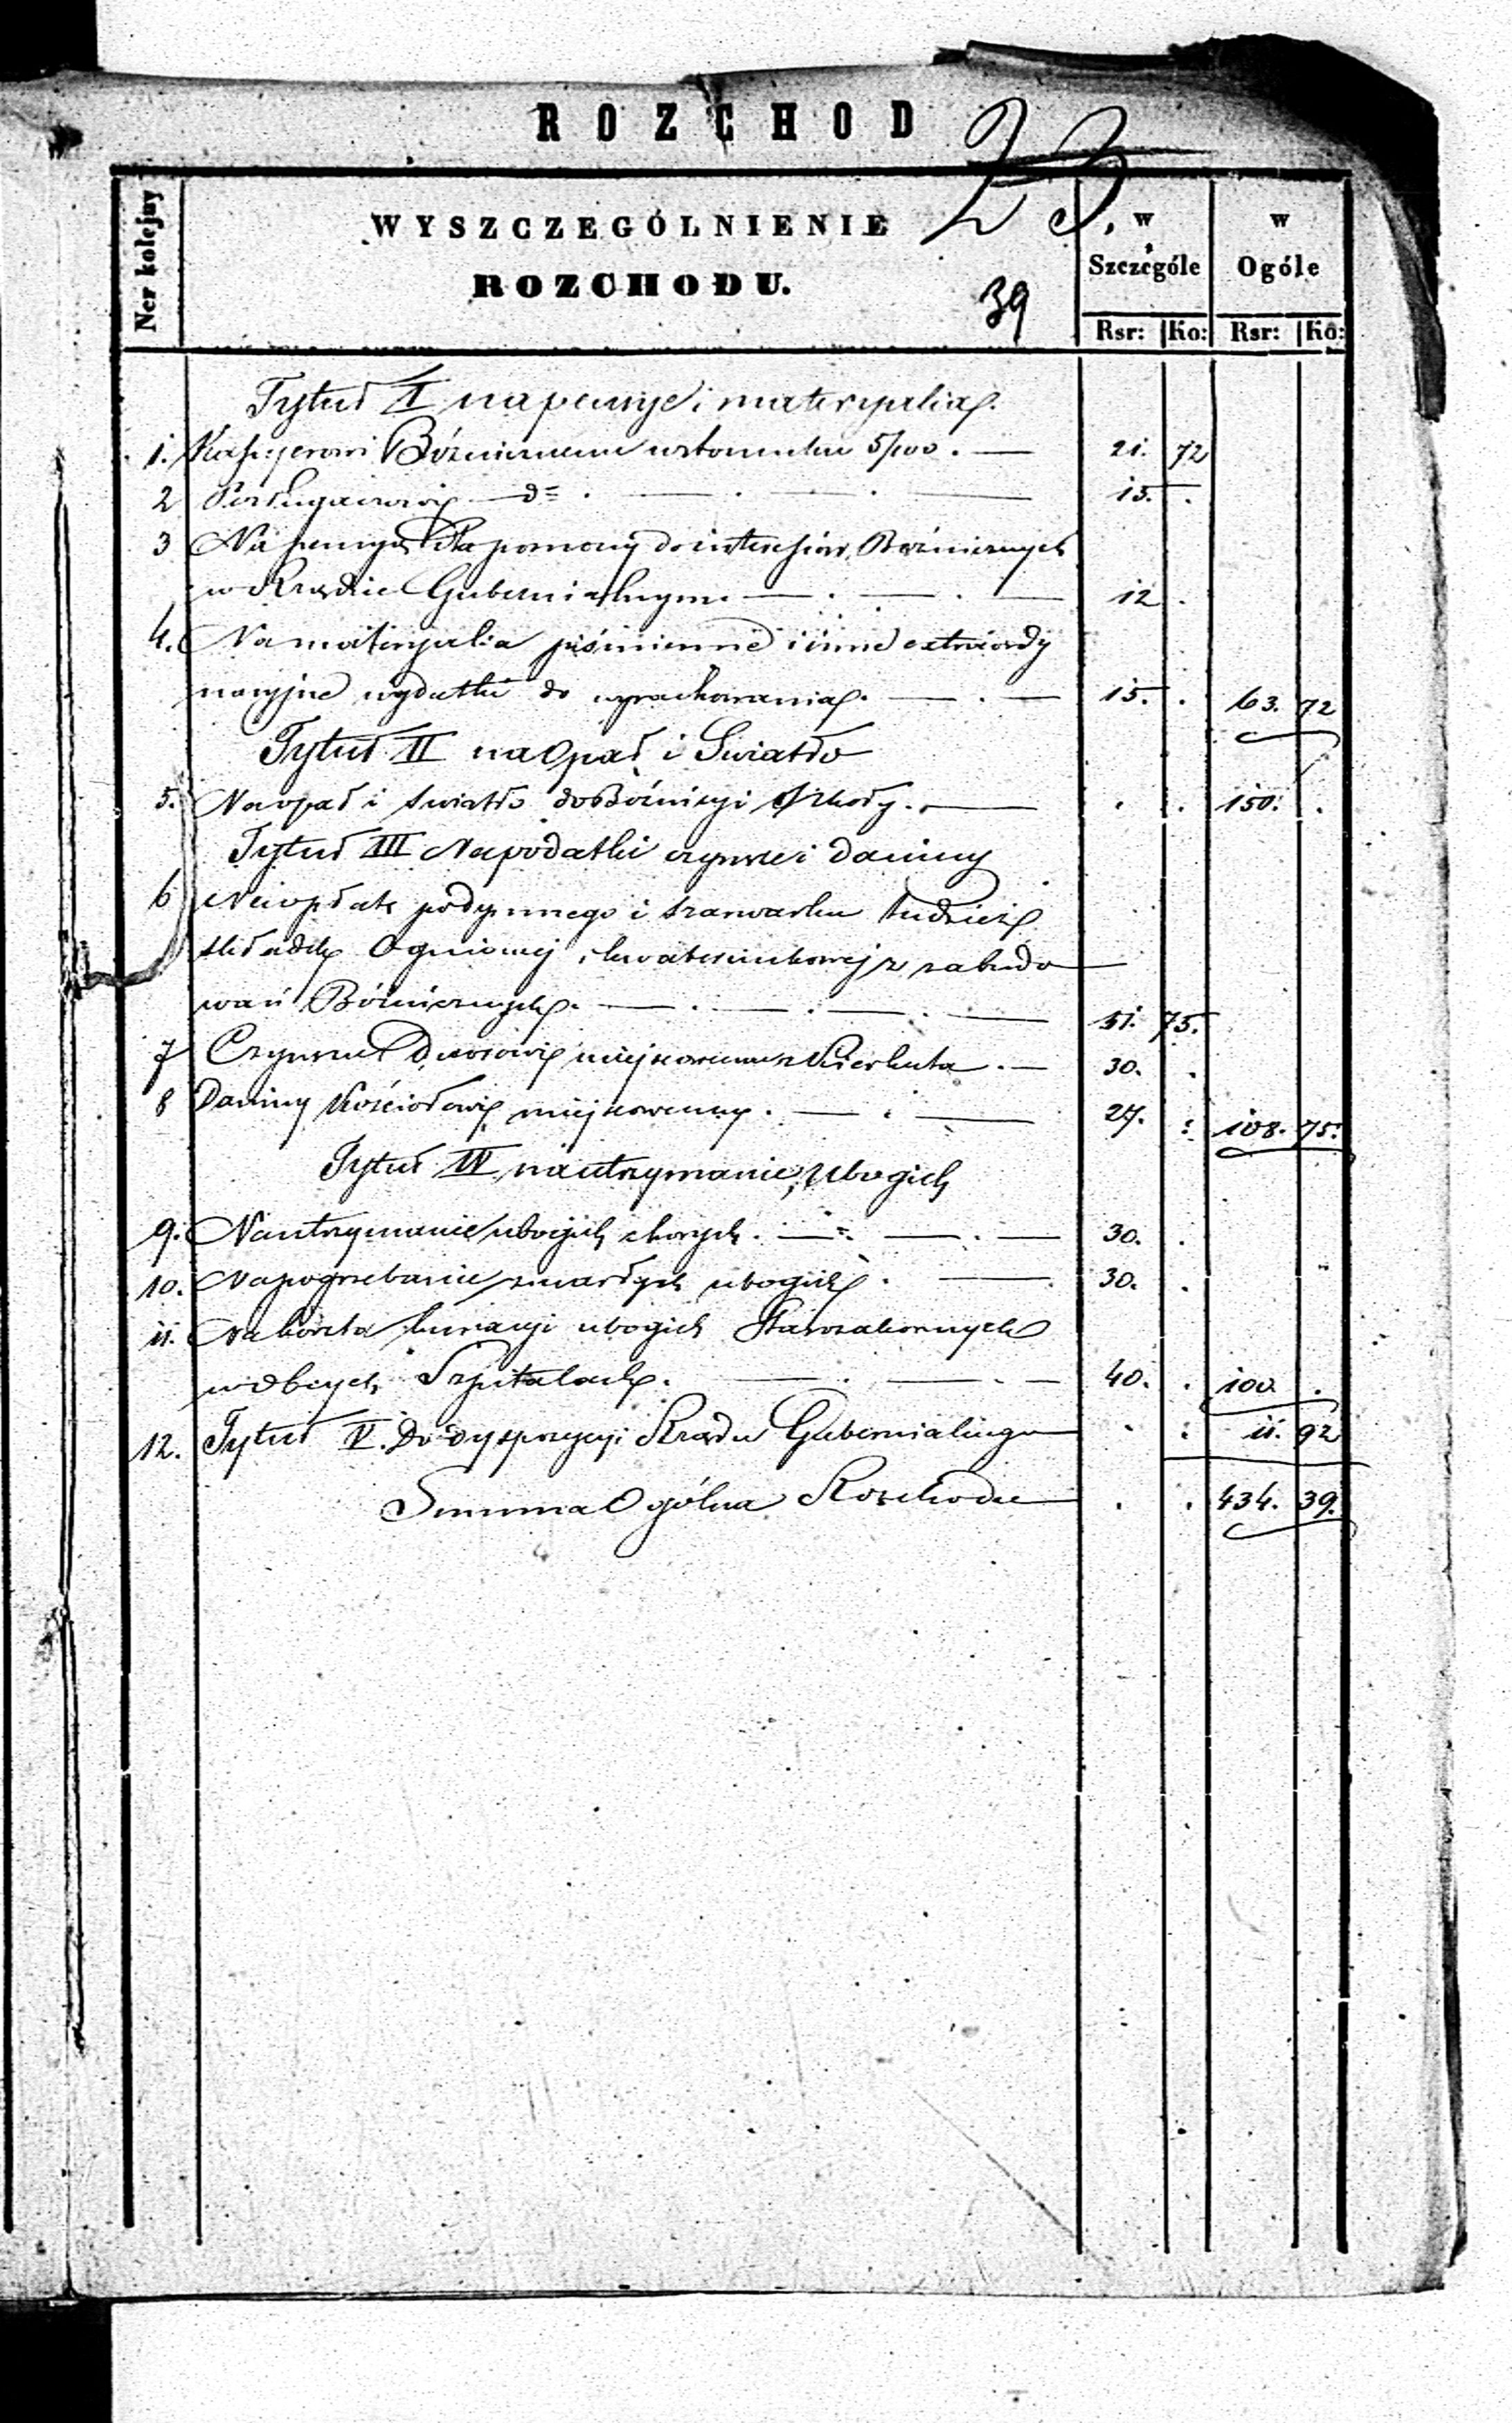 ROZCHOD
23
Ner kolejny
WYSZCZEGÓLNIENIE
ROZCHODU.
39
w Szczególe
w Ogóle
Rsr: Ko: Rsr: Ko:
Tytuł I na pensye i materyalia
1. Kassyerowi Bóżnicznemu w stosunku 5/100 . — 21. 72
2 Posługaczowi — d= . — 15. .
3 Na pensyą dla do interessów Bóżnicznych
w Rządzie Gubernialnym — 12 .
4. Na materyalia piśmienne i inne extraordy
naryjne wydatki do wyrachowania . — 15. . 63. 72
Tytuł II na Opał i Swiatło
5. Na opał i swiatło do Bóżnicy i Szkoły . — . . 150. .
Tytuł III Na podatki czynsze i daniny
6 Na opłatę podymnego i szarwarku tudzież
składki Ogniowej i kwaterunkowej z zabudo
wań Bóżnicznych . — 51. 75.
7 Czynszu Dworowi miejscowemu — 30. .
8 Daniny Kościołowi miejscowemu . — 27. : 108. 75.
Tytuł IV na utrzymanie Ubogich
9. Na utrzymanie ubogich chorych . — 30. .
10. Na pogrzebanie zmarłych ubogich . — 30. .
11. Na koszta kuracyi ubogich Starozakonnych
w obcych Szpitalach . — 40. . 100 .
12. Tytuł V. Do dyspozycyi Rządu Gubernialnego — . : 11. 92
Summa Ogólna Rozchodu — . . 434. 39.